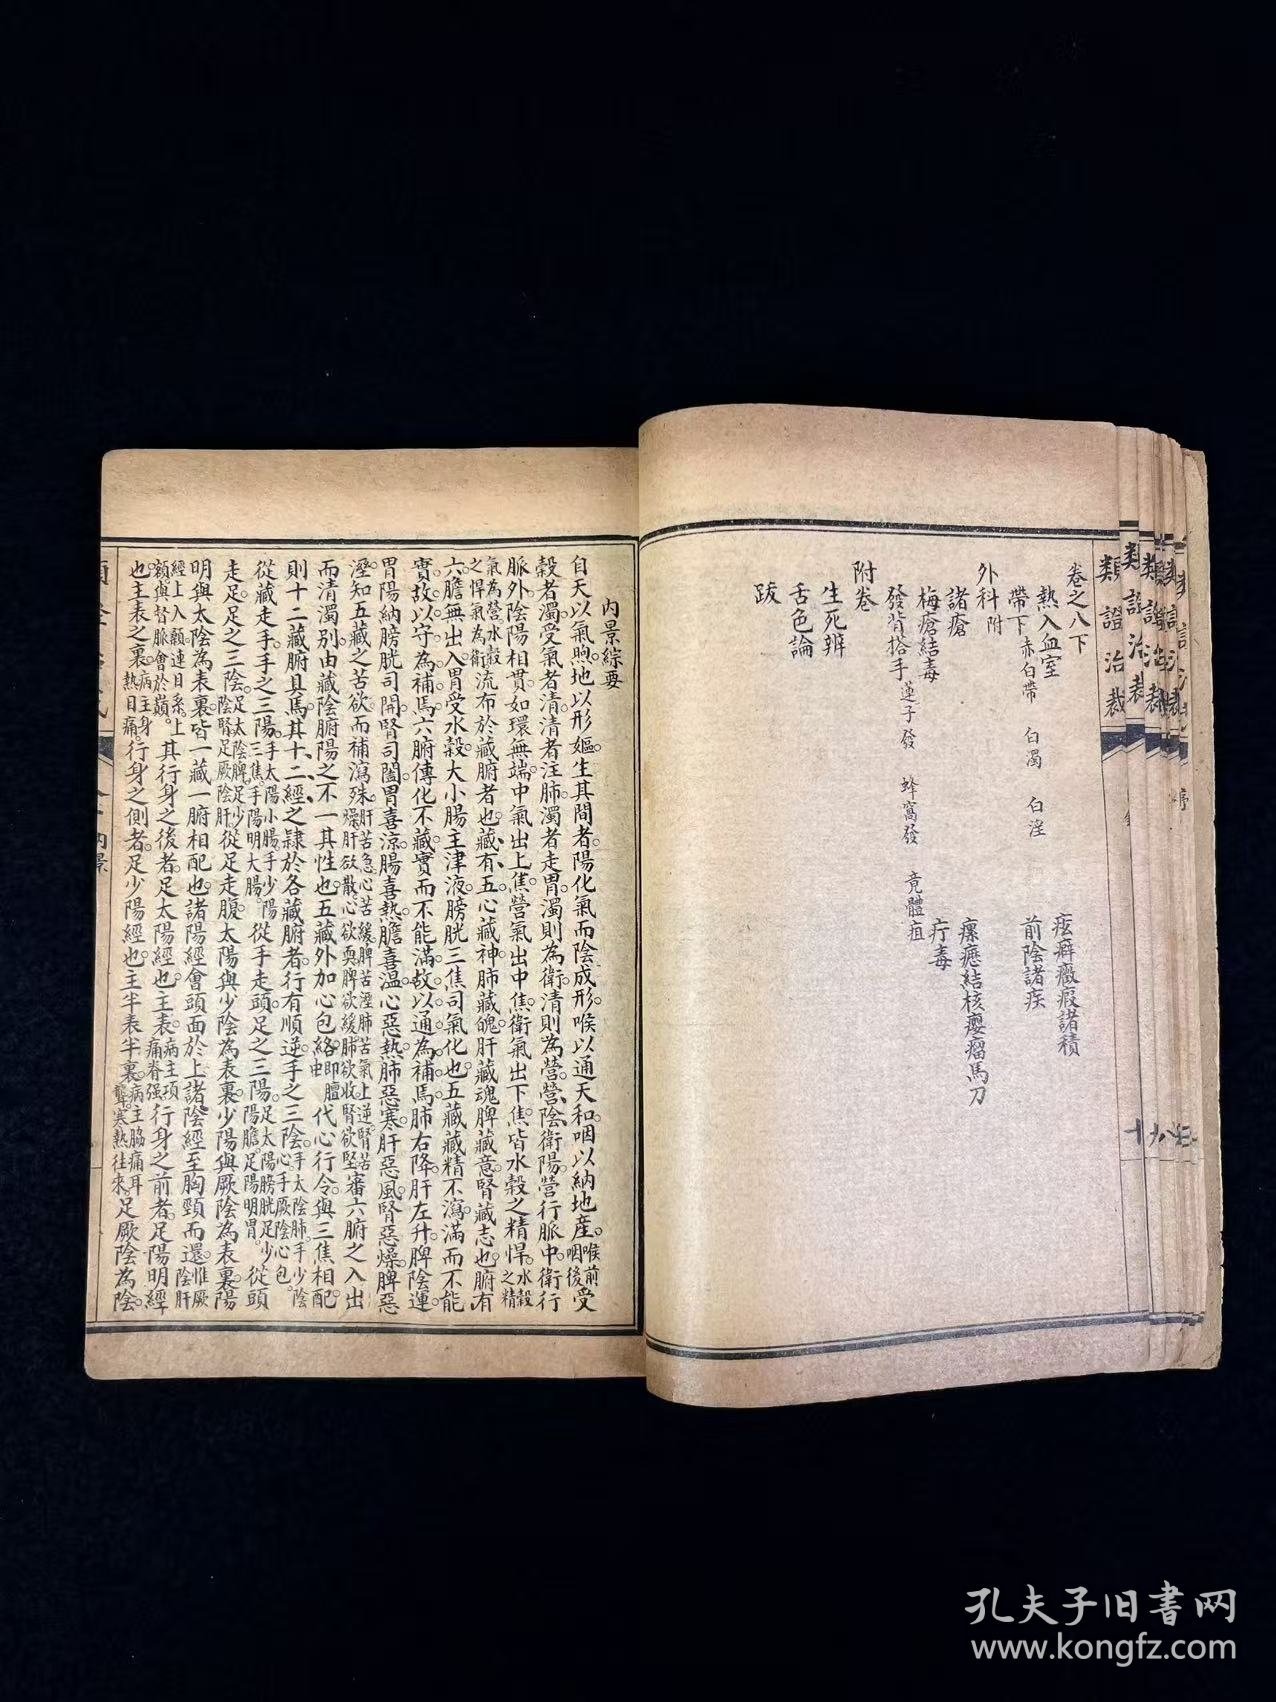 卷之八下
痃癖癥瘕諸積
熱入血室
前陰諸疾
帶下 赤白帶 白濁 白淫
外科附
諸瘡
瘰癧結核癭瘤馬刀
梅瘡結毒
疔毒
發背搭手 蓮子發 蜂窩發 竟體疽
附卷
生死辨
舌色論
跋
類證治裁
內景綜要
自天以氣煦地以形嫗生其間者陽化氣而陰成形喉以通天和咽以納地產喉前咽後受
穀者濁受氣者清清者注肺濁者走胃濁則為衛清則為營營陰衛陽營行脈中衛行
脈外陰陽相貫如環無端中氣出上焦營氣出中焦衛氣出下焦皆水穀之精悍水穀之精
氣為營水穀之悍氣為衛流布於藏腑者也藏有五心藏神肺藏魄肝藏魂脾藏意腎藏志也腑有
六膽無出入胃受水穀大小腸主津液膀胱三焦司氣化也五藏藏精不瀉滿而不能
實故以守為補焉六腑傳化不藏實而不能滿故以通為補焉肺右降肝左升脾陰運
胃陽納膀胱司開腎司闔胃喜涼腸喜熱膽喜溫心惡熱肺惡寒肝惡風腎惡燥脾惡
溼知五藏之苦欲而補瀉殊肝苦急心苦緩脾苦溼肺苦氣上逆腎苦燥肝欲散心欲耎脾欲緩肺欲收腎欲堅審六腑之入出
而清濁別由藏陰腑陽之不一其性也五藏外加心包絡即膻中代心行令與三焦相配
則十二藏腑具焉其十二經之隸於各藏腑者行有順逆手之三陰手太陰肺手少陰心手厥陰心包
從藏走手手之三陽手太陽小腸手少陽三焦手陽明大腸從手走頭足之三陽足太陽膀胱足少陽膽足陽明胃從頭
走足足之三陰足太陰脾足少陰腎足厥陰肝從足走腹太陽與少陰為表裏少陽與厥陰為表裏陽
明與太陰為表裏皆一藏一腑相配也諸陽經會頭面於上諸陰經至胸頸而還惟厥陰肝
經上入顱連目系上額與督脈會於巔其行身之後者足太陽經也主表病主項痛脊強行身之前者足陽明經
也主表之裏病主身熱目痛行身之側者足少陽經也主半表半裏病主脇痛耳聾寒熱往來足厥陰為陰